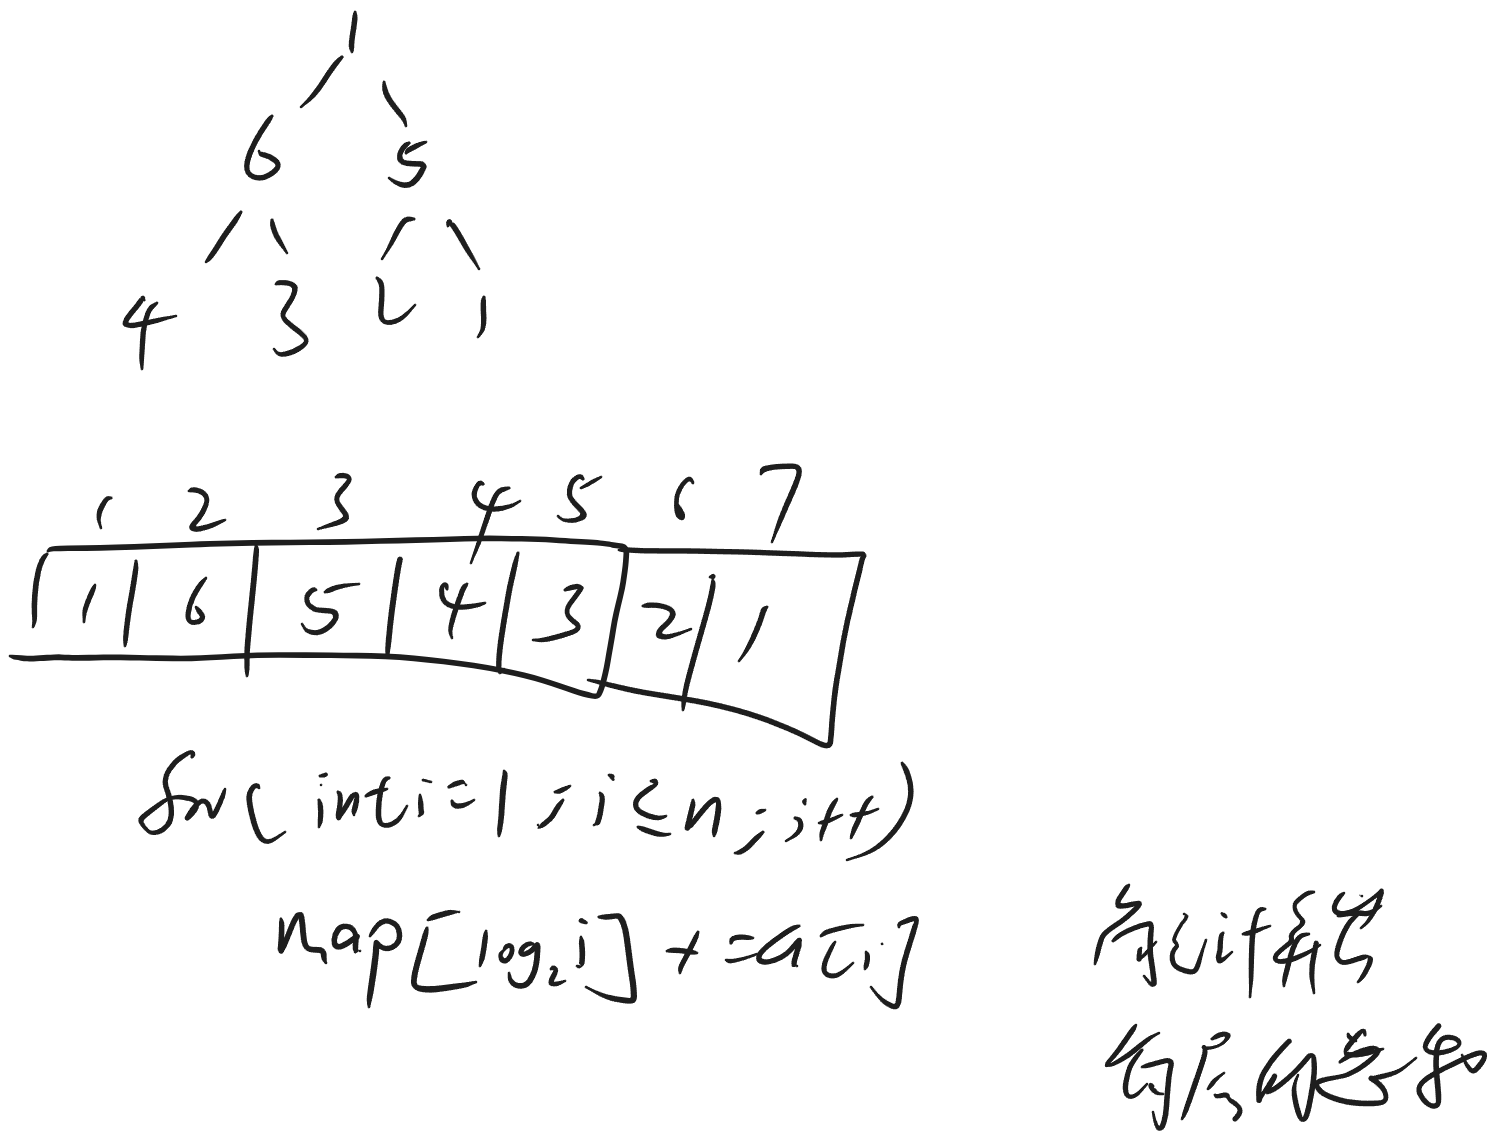 1
6 5
4 3 2 1
1 2 3 4 5 6 7
1 6 5 4 3 2 1
for(int i=1;i≤n;i++)
map[log₂i]+=a[i]
计算
每层的总和